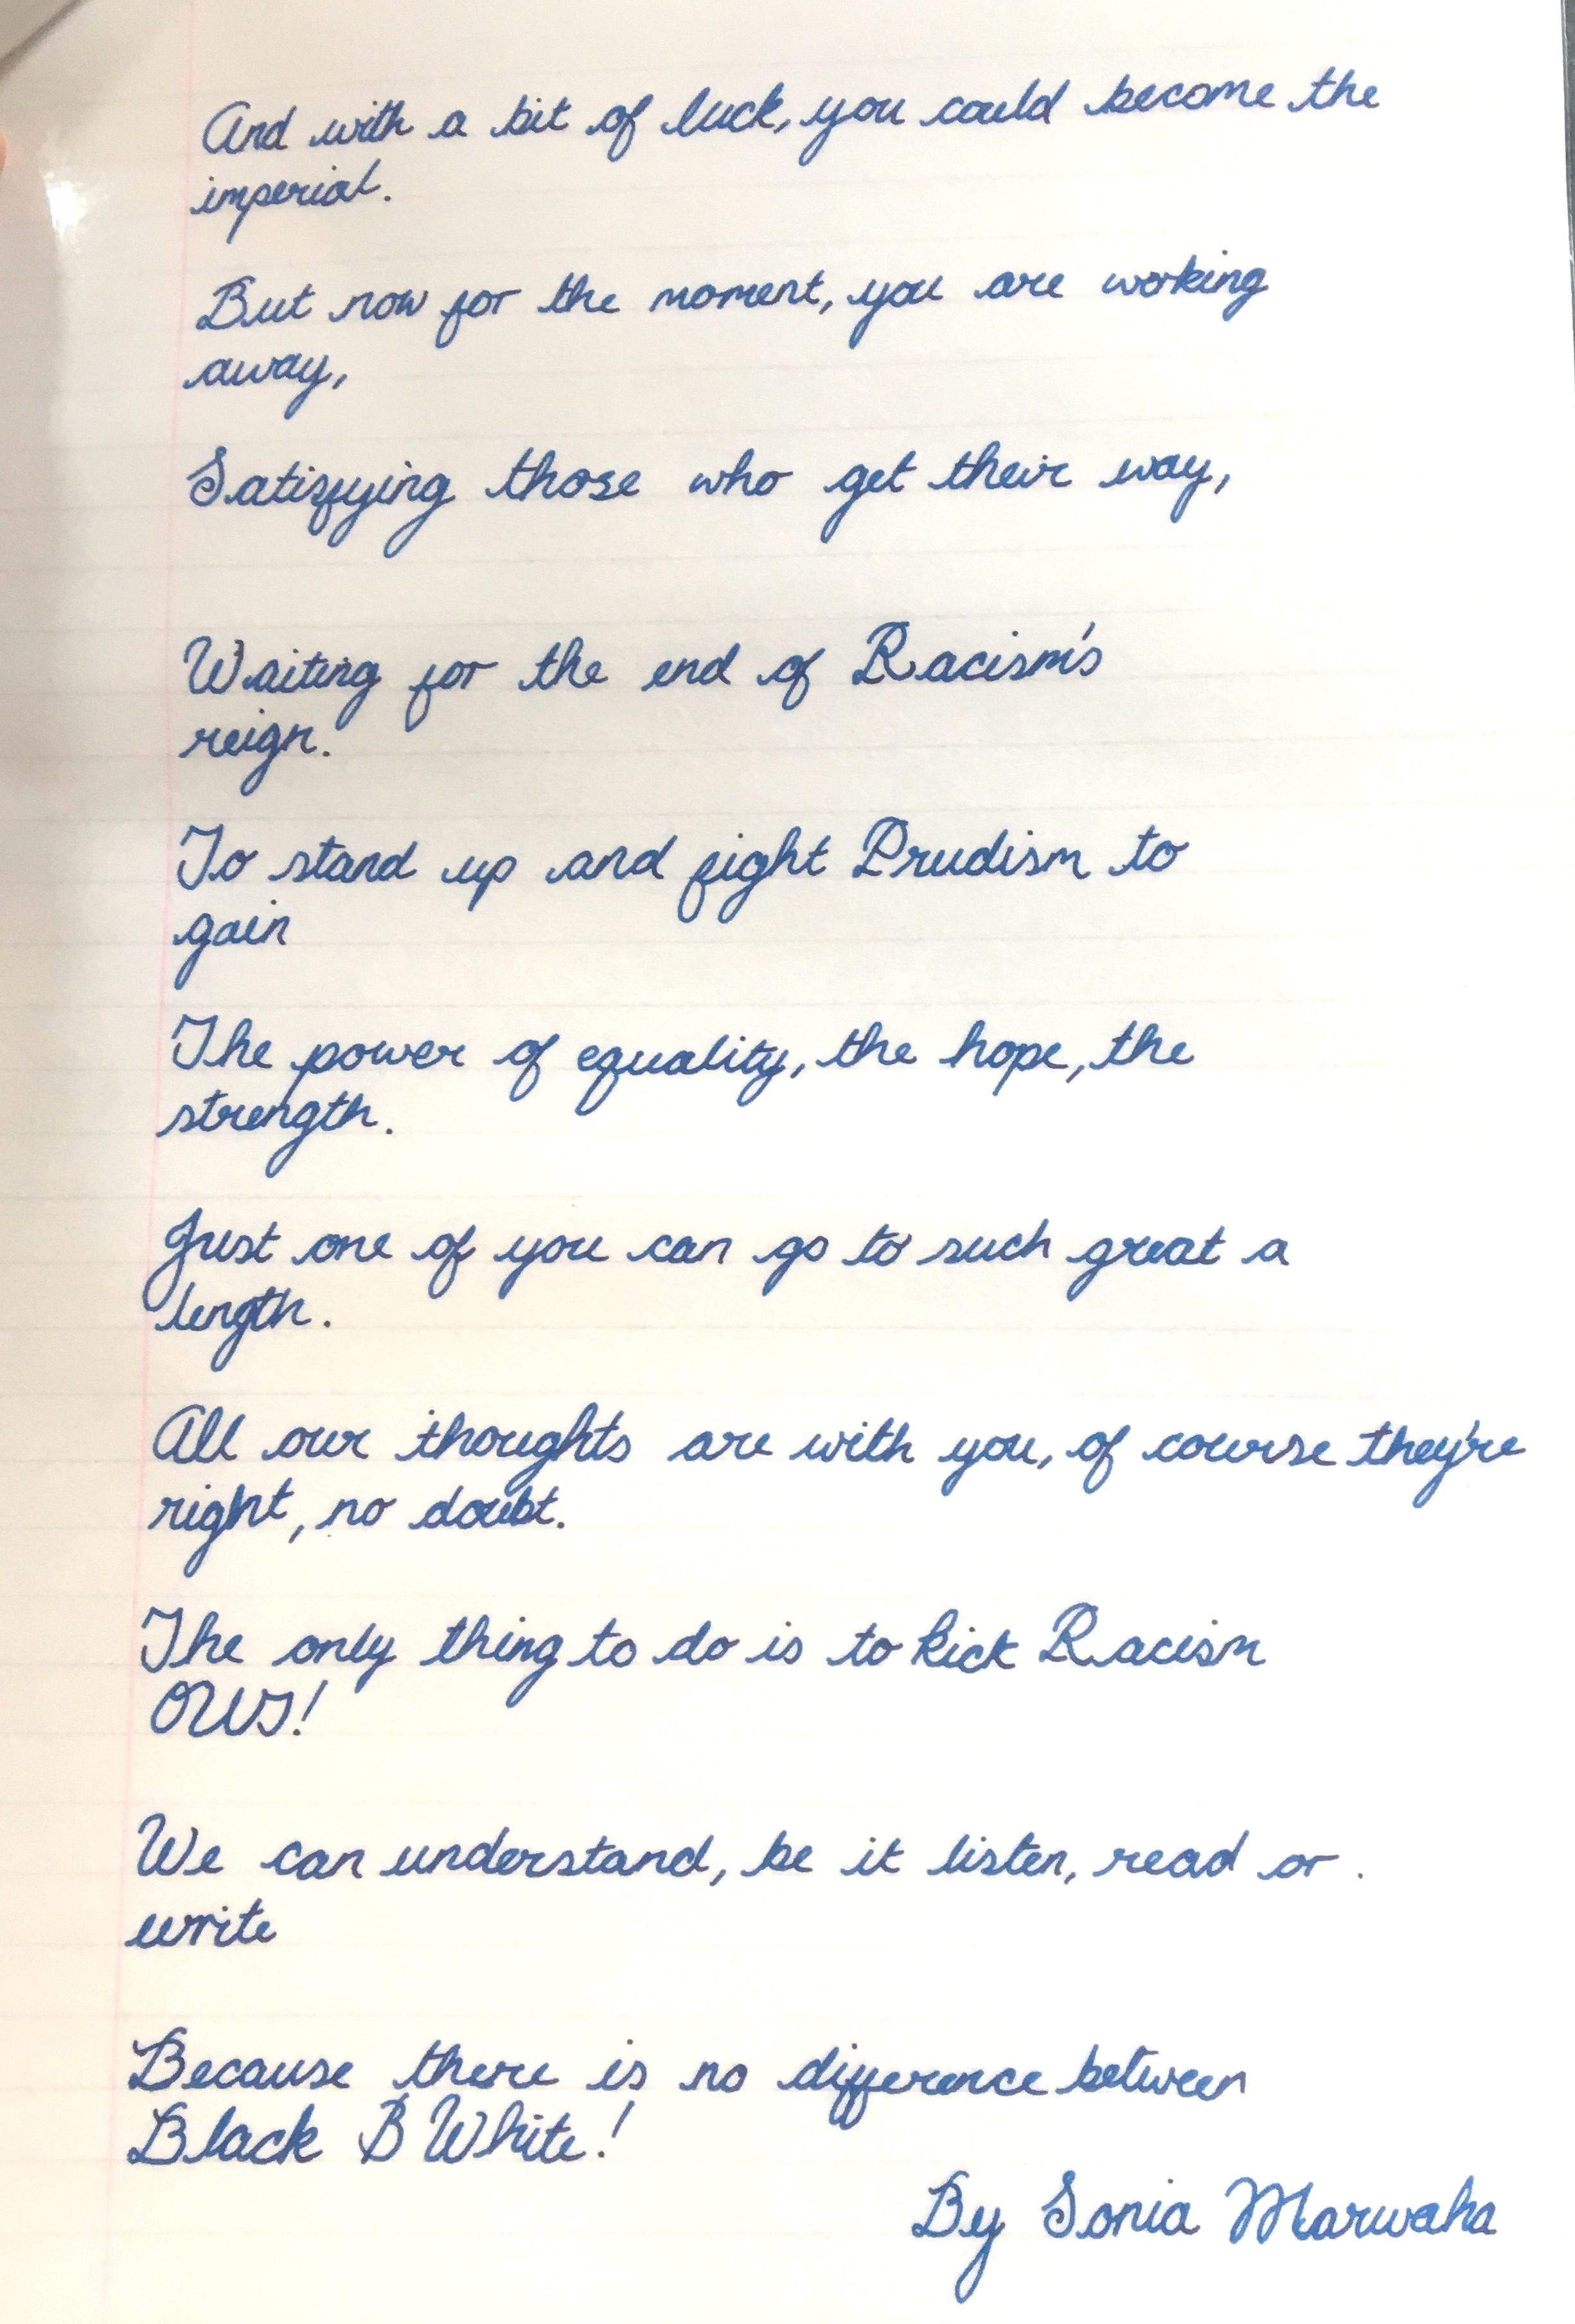 And with a bit of luck, you could become the
imperial.
But now for the moment, you are working
away,
Satisfying those who get their way,
Waiting for the end of Racism's
reign.
To stand up and fight Prudism to
gain
The power of equality, the hope, the
strength.
Just one of you can go to such great a
length.
All our thoughts are with you, of course they're
right, no doubt.
The only thing to do is to kick Racism
OUT!
We can understand, be it listen, read or
write
Because there is no difference between
Black & White!
By Sonia Marwaha